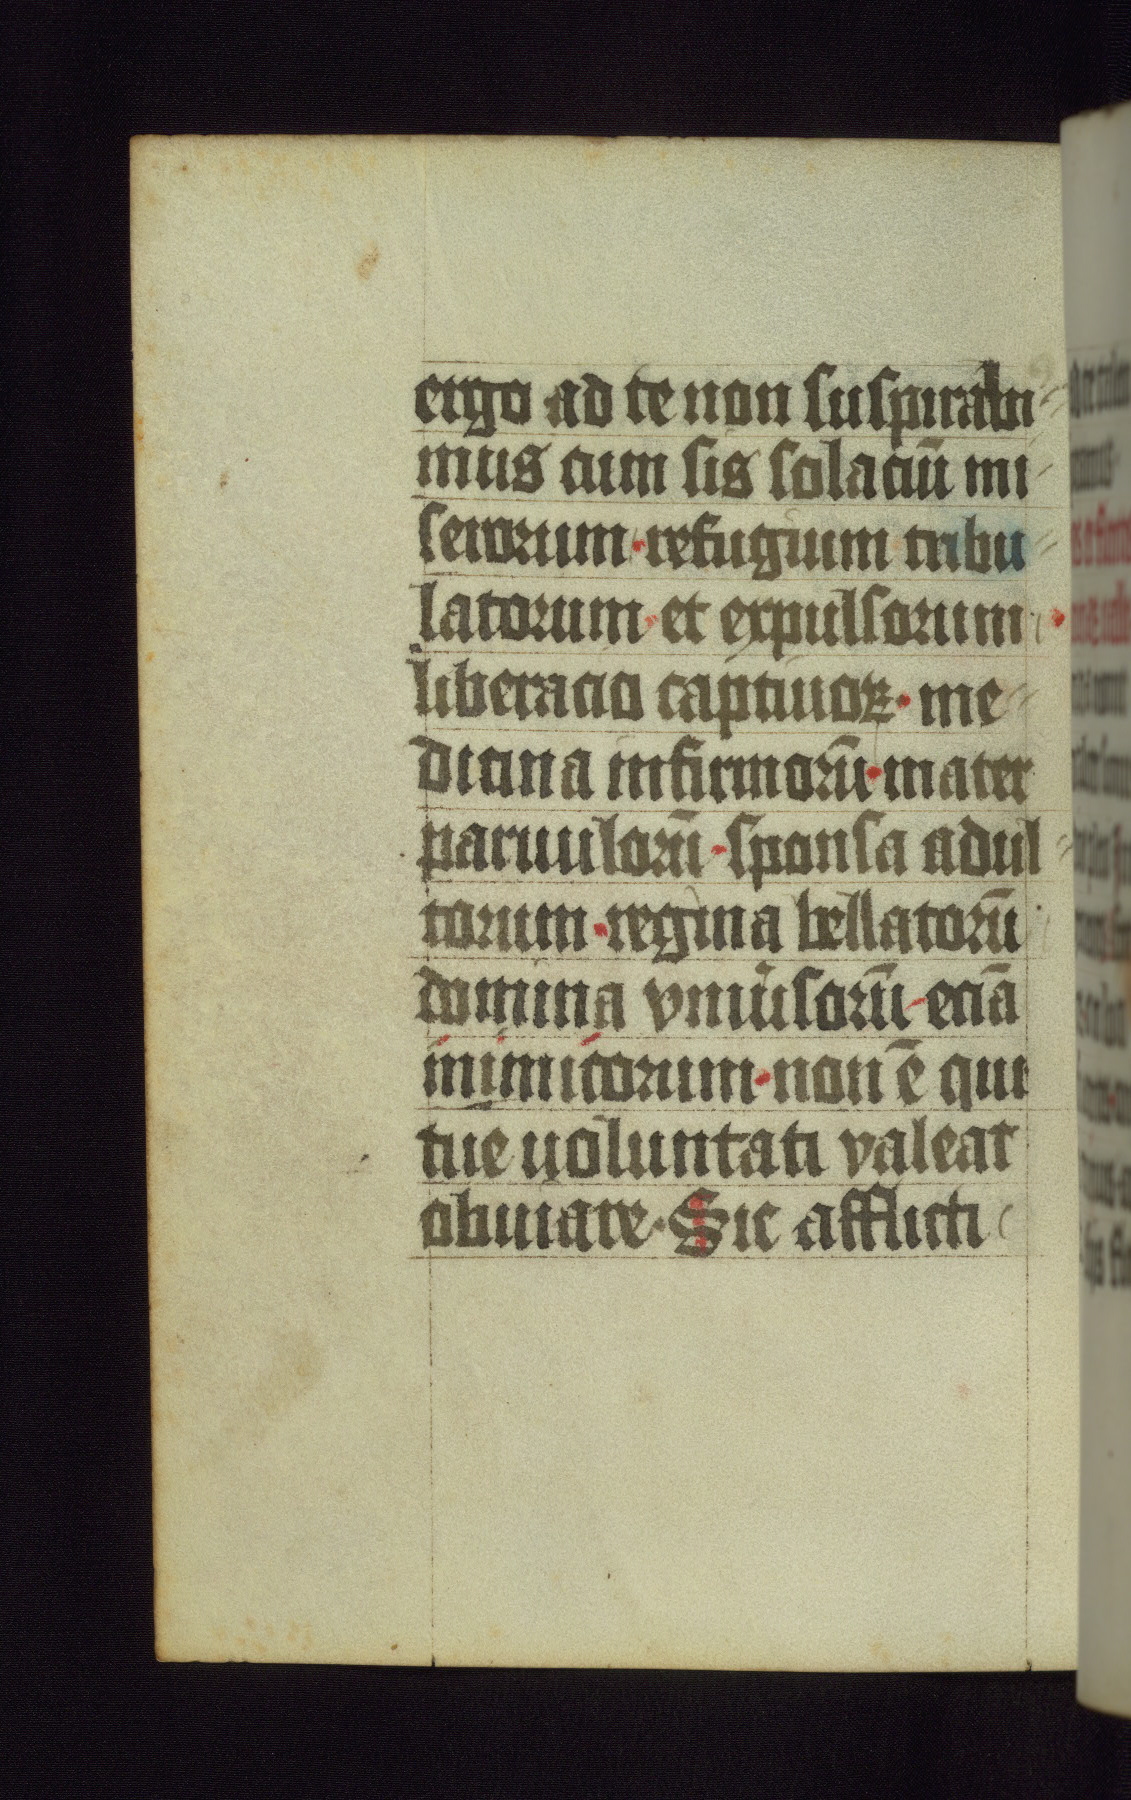 ergo ad te non suspirabi
mus cum sis solaciū mi
serorum · refugium tribu
latorum · et expulsorum ·
liberacio captiuoꝝ · me
dicina infirmorū · mater
paruulorū · sponsa adul
torum · regina bellatorū
domina vniu͛sorū · eciā
inimicorum · non ē qui
tue uoluntati valeat
obuiare · Sic afflicti